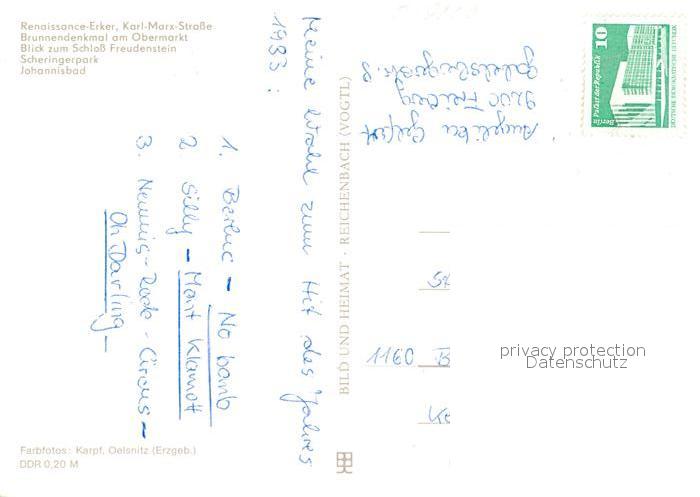 Renaissance-Erker, Karl-Marx-Straße
Brunnendenkmal am Obermarkt
Blick zum Schloß Freudenstein
Scheringerpark
Johannisbad
Meine Wahl zum Hit des Jahres
1983:
1. Berluc – No bomb
2 Silly – Mont Klamott
3. Neumis-Rock-Circus –
Oh Darling –
BILD UND HEIMAT · REICHENBACH (VOGTL)
Angelika
9200 Freiberg
10
Palast der Republik
Berlin
DEUTSCHE DEMOKRATISCHE REPUBLIK
1160 B
privacy protection
Datenschutz
Farbfotos: Karpf, Oelsnitz (Erzgeb.)
DDR 0,20 M